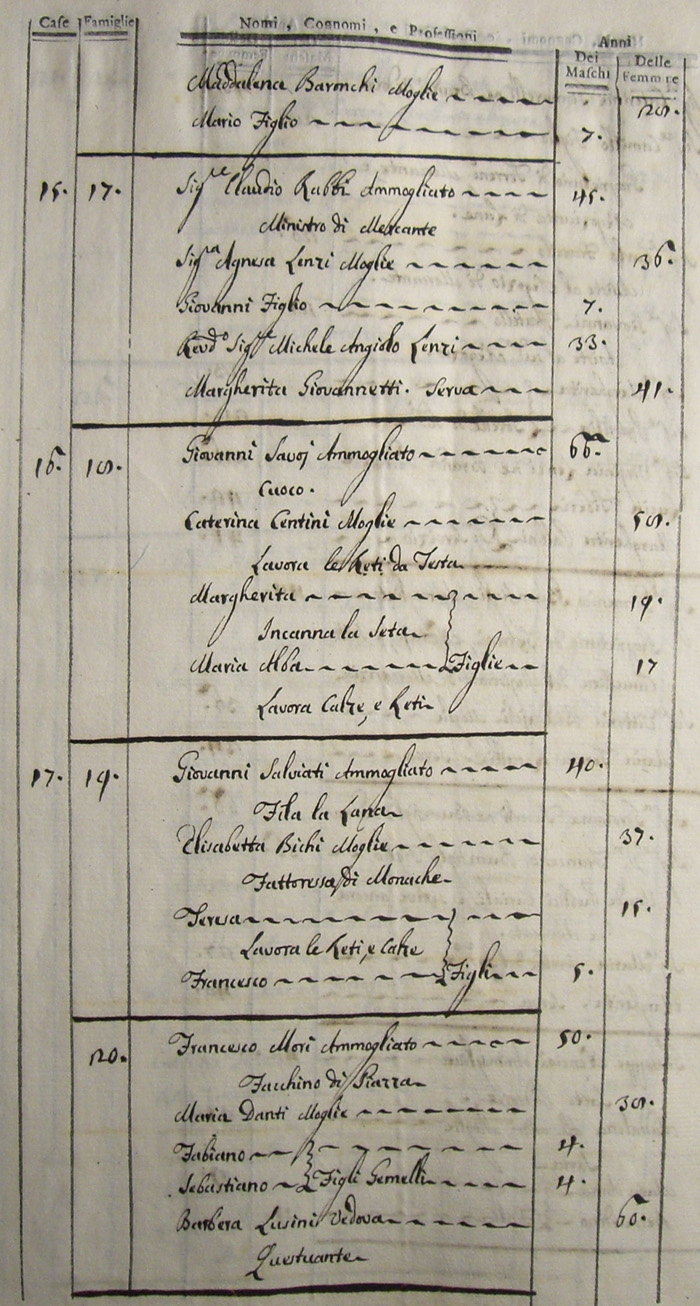 Case Famiglie Nomi, Cognomi, e Professioni Anni
Dei Maschi Delle Femmine
Maddalena Baronchi Moglie 28.
Mario Figlio 7.
15. 17. Sig.re Claudio Rabbi Ammogliato 45.
Ministro di Mercante
Sig.ra Agnesa Lenzi Moglie 36.
Giovanni Figlio 7.
Revd.o Sig.re Michele Angiolo Lenzi 33.
Margherita Giovannetti. Serva 41.
16. 18. Giovanni Savoj Ammogliato 66.
Cuoco.
Caterina Centini Moglie 58.
Lavora le Reti da Testa
Margherita 19.
Incanna la Seta
Maria Alba Figlie 17
Lavora Calze, e Reti
17. 19. Giovanni Salviati Ammogliato 40.
Fila la Lana
Elisabetta Bichi Moglie 37.
Fattoressa di Monache
Teresa 15.
Lavora le Reti, e Calze
Francesco Figli 5.
20. Francesco Mori Ammogliato 50.
Facchino di Piazza
Maria Danti Moglie 38.
Fabiano 4.
Sebastiano Figli Gemelli 4.
Barbera Lusini Vedova 60.
Questuante